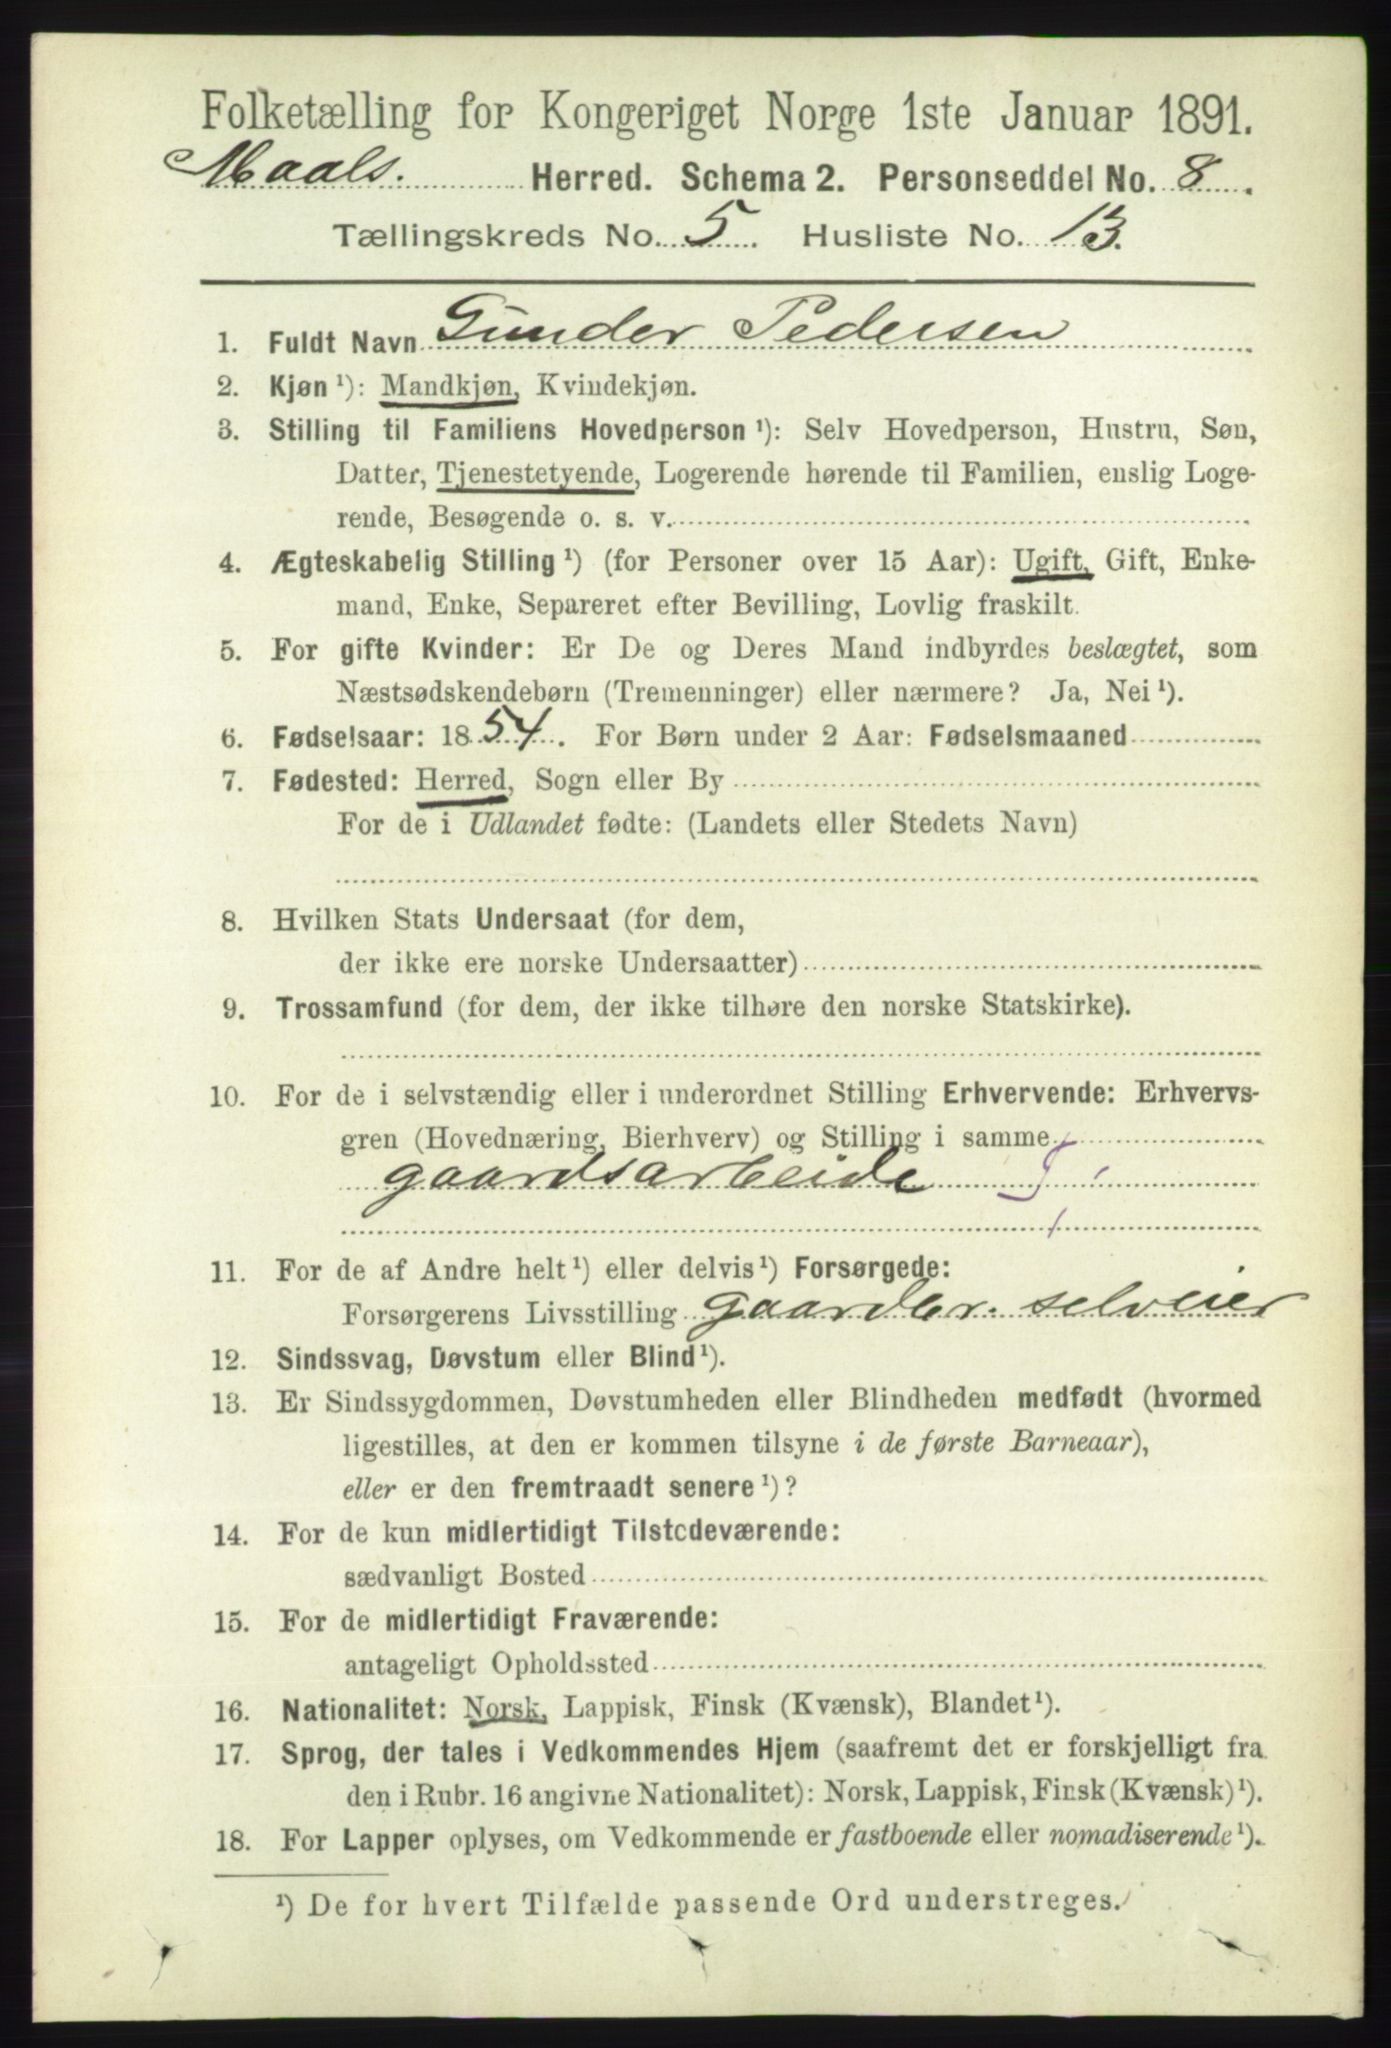 Folketælling for Kongeriget Norge 1ste Januar 1891.
Maals. Herred. Schema 2. Personseddel No. 8.
Tællingskreds No. 5. Husliste No. 13.
1. Fuldt Navn Gunder Pedersen
2. Kjøn ¹): Mandkjøn, Kvindekjøn.
3. Stilling til Familiens Hovedperson ¹): Selv Hovedperson, Hustru, Søn,
Datter, Tjenestetyende, Logerende hørende til Familien, enslig Loge-
rende, Besøgende o. s. v.
4. Ægteskabelig Stilling ¹) (for Personer over 15 Aar): Ugift, Gift, Enke-
mand, Enke, Separeret efter Bevilling, Lovlig fraskilt.
5. For gifte Kvinder: Er De og Deres Mand indbyrdes beslægtet, som
Næstsødskendebørn (Tremenninger) eller nærmere? Ja, Nei ¹).
6. Fødselsaar: 1854. For Børn under 2 Aar: Fødselsmaaned
7. Fødested: Herred, Sogn eller By
For de i Udlandet fødte: (Landets eller Stedets Navn)
8. Hvilken Stats Undersaat (for dem,
der ikke ere norske Undersaatter)
9. Trossamfund (for dem, der ikke tilhøre den norske Statskirke).
10. For de i selvstændig eller i underordnet Stilling Erhvervende: Erhvervs-
gren (Hovednæring, Bierhverv) og Stilling i samme
gaardsarbeide
11. For de af Andre helt ¹) eller delvis ¹) Forsørgede:
Forsørgerens Livsstilling gaardbr. selveier
12. Sindssvag, Døvstum eller Blind ¹).
13. Er Sindssygdommen, Døvstumheden eller Blindheden medfødt (hvormed
ligestilles, at den er kommen tilsyne i de første Barneaar),
eller er den fremtraadt senere ¹)?
14. For de kun midlertidigt Tilstedeværende:
sædvanligt Bosted
15. For de midlertidigt Fraværende:
antageligt Opholdssted
16. Nationalitet: Norsk, Lappisk, Finsk (Kvænsk), Blandet ¹).
17. Sprog, der tales i Vedkommendes Hjem (saafremt det er forskjelligt fra
den i Rubr. 16 angivne Nationalitet): Norsk, Lappisk, Finsk (Kvænsk) ¹).
18. For Lapper oplyses, om Vedkommende er fastboende eller nomadiserende ¹).
¹) De for hvert Tilfælde passende Ord understreges.